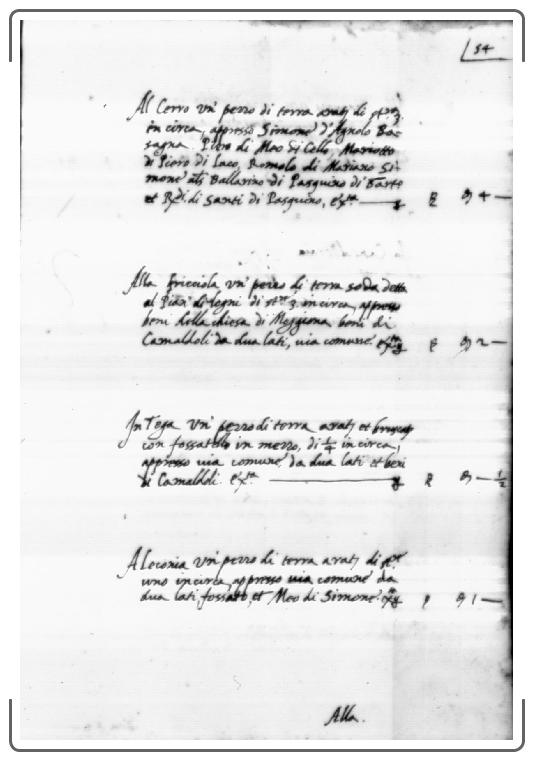 54
Al Cerro un' pezzo di terra arat: di st.re 3.
in circa, appresso Simone d'Agnolo Ba-
sagna. Piero di Meo di Cello, Mariotto
di Piero di Laco, Romolo di Mariano Si-
mone als Ballarino di Pasquino di
et di Santi di Pasquino, 4 —
Alla fricciola un' pezzo di terra soda detta
al Pian di legni di st.re 3. in circa, appresso
beni della chiesa di Moggiona, beni di
Camaldoli da dua lati, via comune 2 —
In Tega un' pezzo di terra arat: et
con fossatello in mezzo, di 1/4 in circa,
appresso via comune, da dua lati et beni
di Camaldoli. — 1/2
A Loconia un' pezzo di terra arat: di st.re
uno in circa, appresso via comune da
dua lati fossato, et Meo di Simone 1 —
Alla.